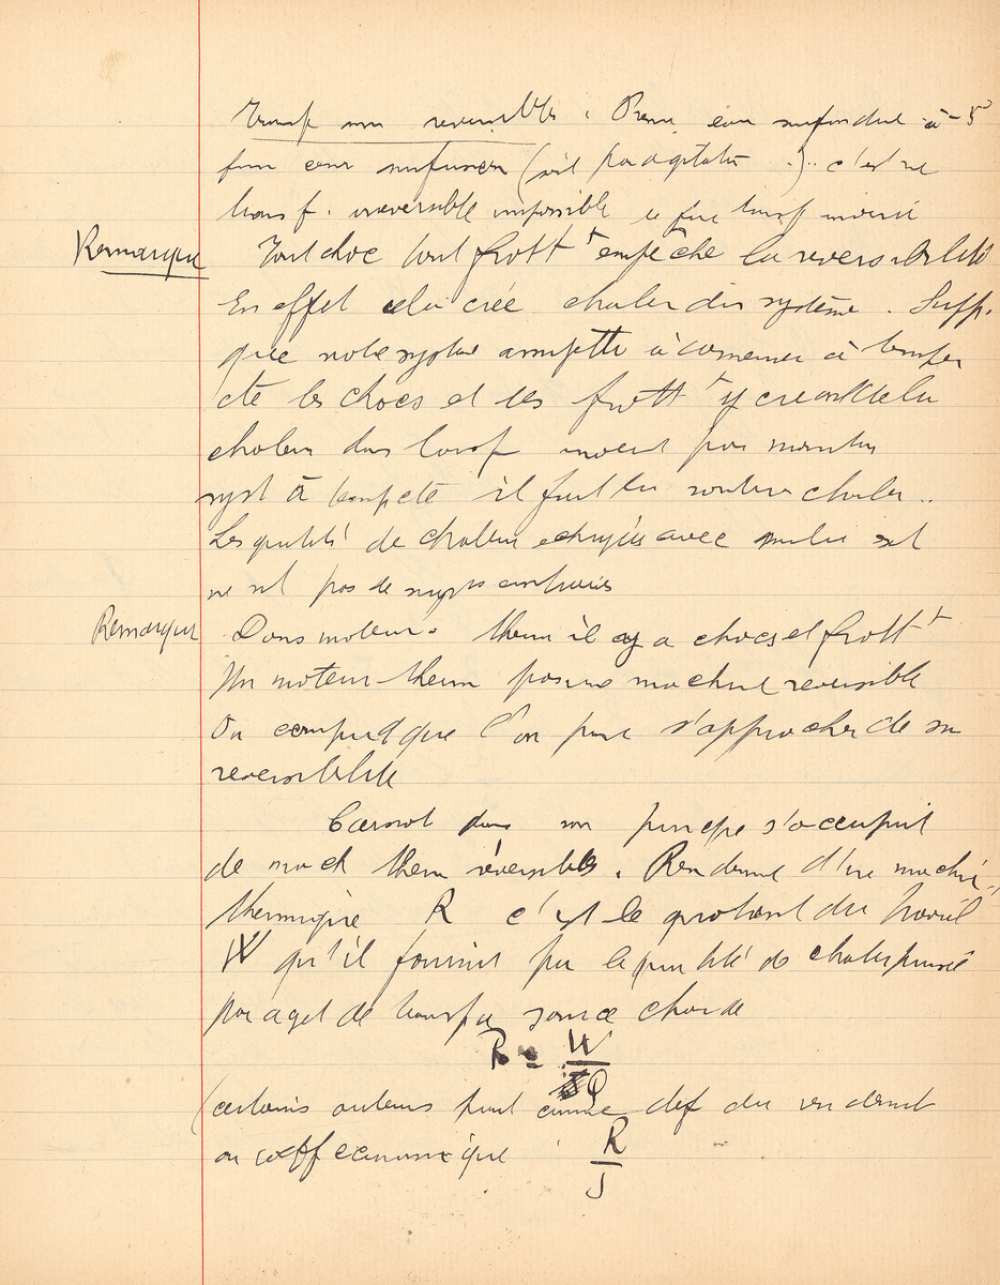 Transf non reversibles. Prenons eau surfondue à -5°
cesser surfusion (soit par agitation ...) .. c'est une
transf. irreversible impossible de faire transf inverse
Remarque Tout choc tout frott^t empêche la reversibilité
En effet celui crée chaleur dans système. Supp.
que notre système assujetti à conserver à temper
cte les chocs et les frott^t y creant de la
chaleur dans transf inverse pour maintenir
syst à temp cte il faut lui soutirer chaleur ..
Les quantités de chaleur echangées avec milieu ext
ne st pas de signes contraires
Remarque Dans moteur therm il y a chocs et frott^t
Un moteur therm pas une machine reversible
On comprend que l'on peut s'approcher de sa
reversibilité
Carnot dans son principe s'occupait
de mach therm réversibles. Rendement d'une machine
thermique R c'est le quotient du travail
W qu'il fournit par la quantité de chaleur puisée
par agent de transf a source chaude
R = W/Q
(certains auteurs prennent comme def du rendement
ou coeff economique R/J